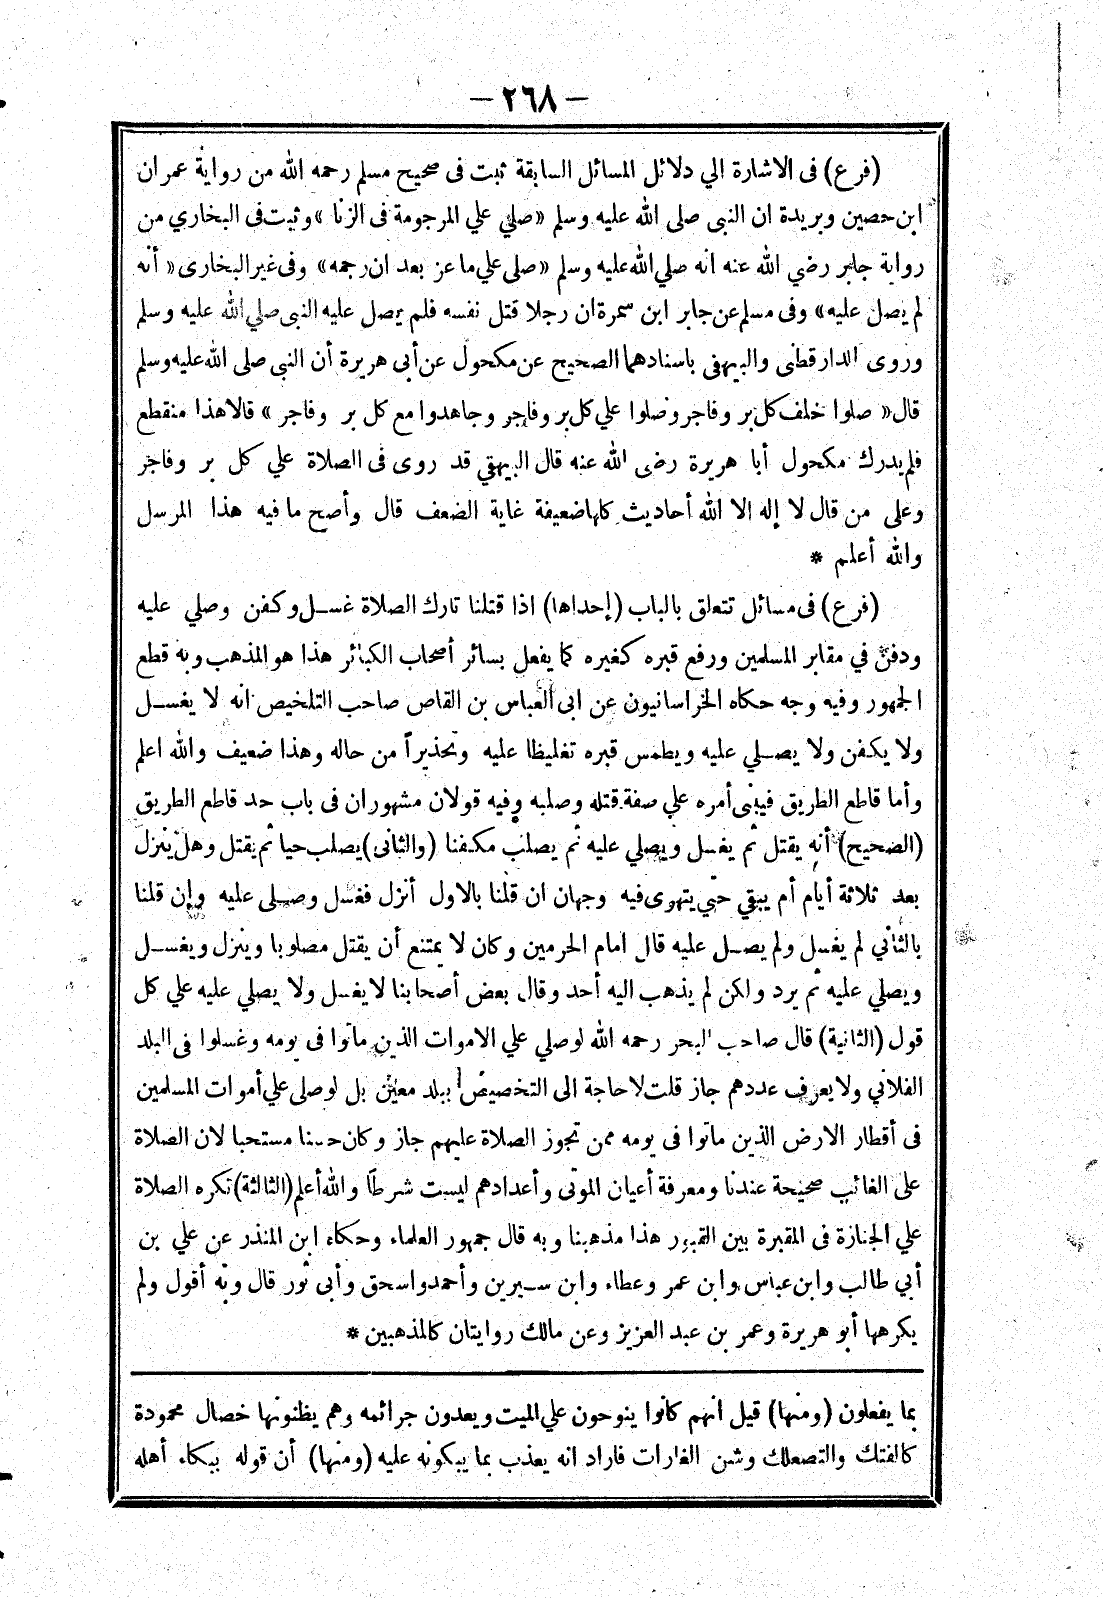 — ٢٦٨ —
(فرع) فى الاشارة الي دلائل المسائل السابقة ثبت فى صحيح مسلم رحمه الله من رواية عمران
ابن حصين وبريدة ان النبى صلى الله عليه وسلم «صلي علي المرجومة فى الزنا» وثبت فى البخاري من
رواية جابر رضي الله عنه انه صلي الله عليه وسلم «صلى علي ماعز بعد ان رجمه» وفى غير البخارى «أنه
لم يصل عليه» وفى مسلم عن جابر ابن سمرة ان رجلا قتل نفسه فلم يصل عليه النبى صلي الله عليه وسلم
وروى الدارقطنى والبيهقى باسنادهما الصحيح عن مكحول عن أبى هريرة أن النبى صلى الله عليه وسلم
قال «صلوا خلف كل بر وفاجر وصلوا علي كل بر وفاجر وجاهدوا مع كل بر وفاجر» قالا هذا منقطع
فلم يدرك مكحول أبا هريرة رضى الله عنه قال البيهقي قد روى فى الصلاة علي كل بر وفاجر
وعلى من قال لا إله الا الله أحاديث كلها ضعيفة غاية الضعف قال وأصح ما فيه هذا المرسل
والله أعلم *
(فرع) فى مسائل تتعلق بالباب (إحداها) اذا قتلنا تارك الصلاة غسل وكفن وصلي عليه
ودفن في مقابر المسلمين ورفع قبره كغيره كما يفعل بسائر أصحاب الكبائر هذا هو المذهب وبه قطع
الجمهور وفيه وجه حكاه الخراسانيون عن ابى العباس بن القاص صاحب التلخيص انه لا يغسل
ولا يكفن ولا يصلي عليه ويطمس قبره تغليظا عليه وتحذيراً من حاله وهذا ضعيف والله اعلم
وأما قاطع الطريق فيبنى أمره علي صفة قتله وصلبه وفيه قولان مشهوران فى باب حد قاطع الطريق
(الصحيح) أنه يقتل ثم يغسل ويصلي عليه ثم يصلب مكفنا (والثانى) يصلب حيا ثم يقتل وهل ينزل
بعد ثلاثة أيام أم يبقي حتي يتهرى فيه وجهان ان قلنا بالاول أنزل فغسل وصلى عليه وإن قلنا
بالثانى لم يغسل ولم يصل عليه قال امام الحرمين وكان لا يمتنع أن يقتل مصلوبا وينزل ويغسل
ويصلي عليه ثم يرد ولكن لم يذهب اليه أحد وقال بعض أصحابنا لا يغسل ولا يصلي عليه علي كل
قول (الثانية) قال صاحب البحر رحمه الله لو صلي علي الاموات الذين ماتوا فى يومه وغسلوا فى البلد
الفلاني ولا يعرف عددهم جاز قلت لا حاجة الى التخصيص ببلد معين بل لو صلى علي أموات المسلمين
فى أقطار الارض الذين ماتوا فى يومه ممن تجوز الصلاة عليهم جاز وكان حسنا مستحبا لان الصلاة
على الغائب صحيحة عندنا ومعرفة أعيان الموتى وأعدادهم ليست شرطًا والله أعلم (الثالثة) تكره الصلاة
علي الجنازة فى المقبرة بين القبور هذا مذهبنا وبه قال جمهور العلماء وحكاه ابن المنذر عن علي بن
أبي طالب وابن عباس وابن عمر وعطاء وابن سيرين وأحمد واسحق وأبى ثور قال وبه أقول ولم
يكرهها أبو هريرة وعمر بن عبد العزيز وعن مالك روايتان كالمذهبين *
بما يفعلون (ومنها) قيل انهم كانوا ينوحون علي الميت ويعدون جرائمه وهم يظنونها خصال محمودة
كالفتك والتصعلك وشن الغارات فاراد انه يعذب بما يبكونه عليه (ومنها) أن قوله ببكاء أهله